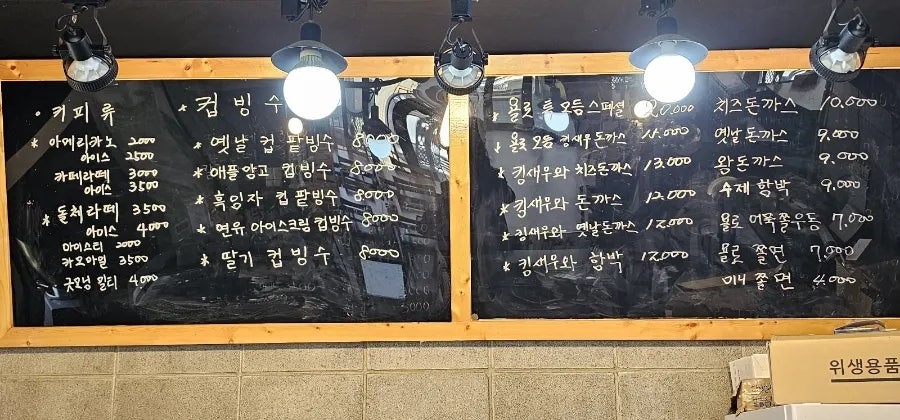 · 커피류
* 아메리카노 2000
아이스 2500
카페라떼 3000
아이스 3500
* 돌체라떼 3500
아이스 4000
아이스티 2000
카모마일 3500
굿모닝 밀티 4000
* 컵빙수
* 옛날 컵 팥빙수 8000
* 애플망고 컵빙수 8000
* 흑임자 컵 팥빙수 8000
* 연유 아이스크림 컵빙수 8000
* 딸기 컵빙수 8000
* 욜로 특 모듬스페셜 20,000
* 욜로 모듬 킹새우돈까스
* 킹새우와 치즈돈까스 13,000
* 킹새우와 돈까스 12,000
* 킹새우와 옛날돈까스 12,000
* 킹새우와 함박 12,000
치즈돈까스 10,000
옛날돈까스 9,000
왕돈까스 9,000
수제 함박 9,000
욜로 어묵쫄우동 7,000
욜로 쫄면 7,000
미니 쫄면 4,000
위생용품